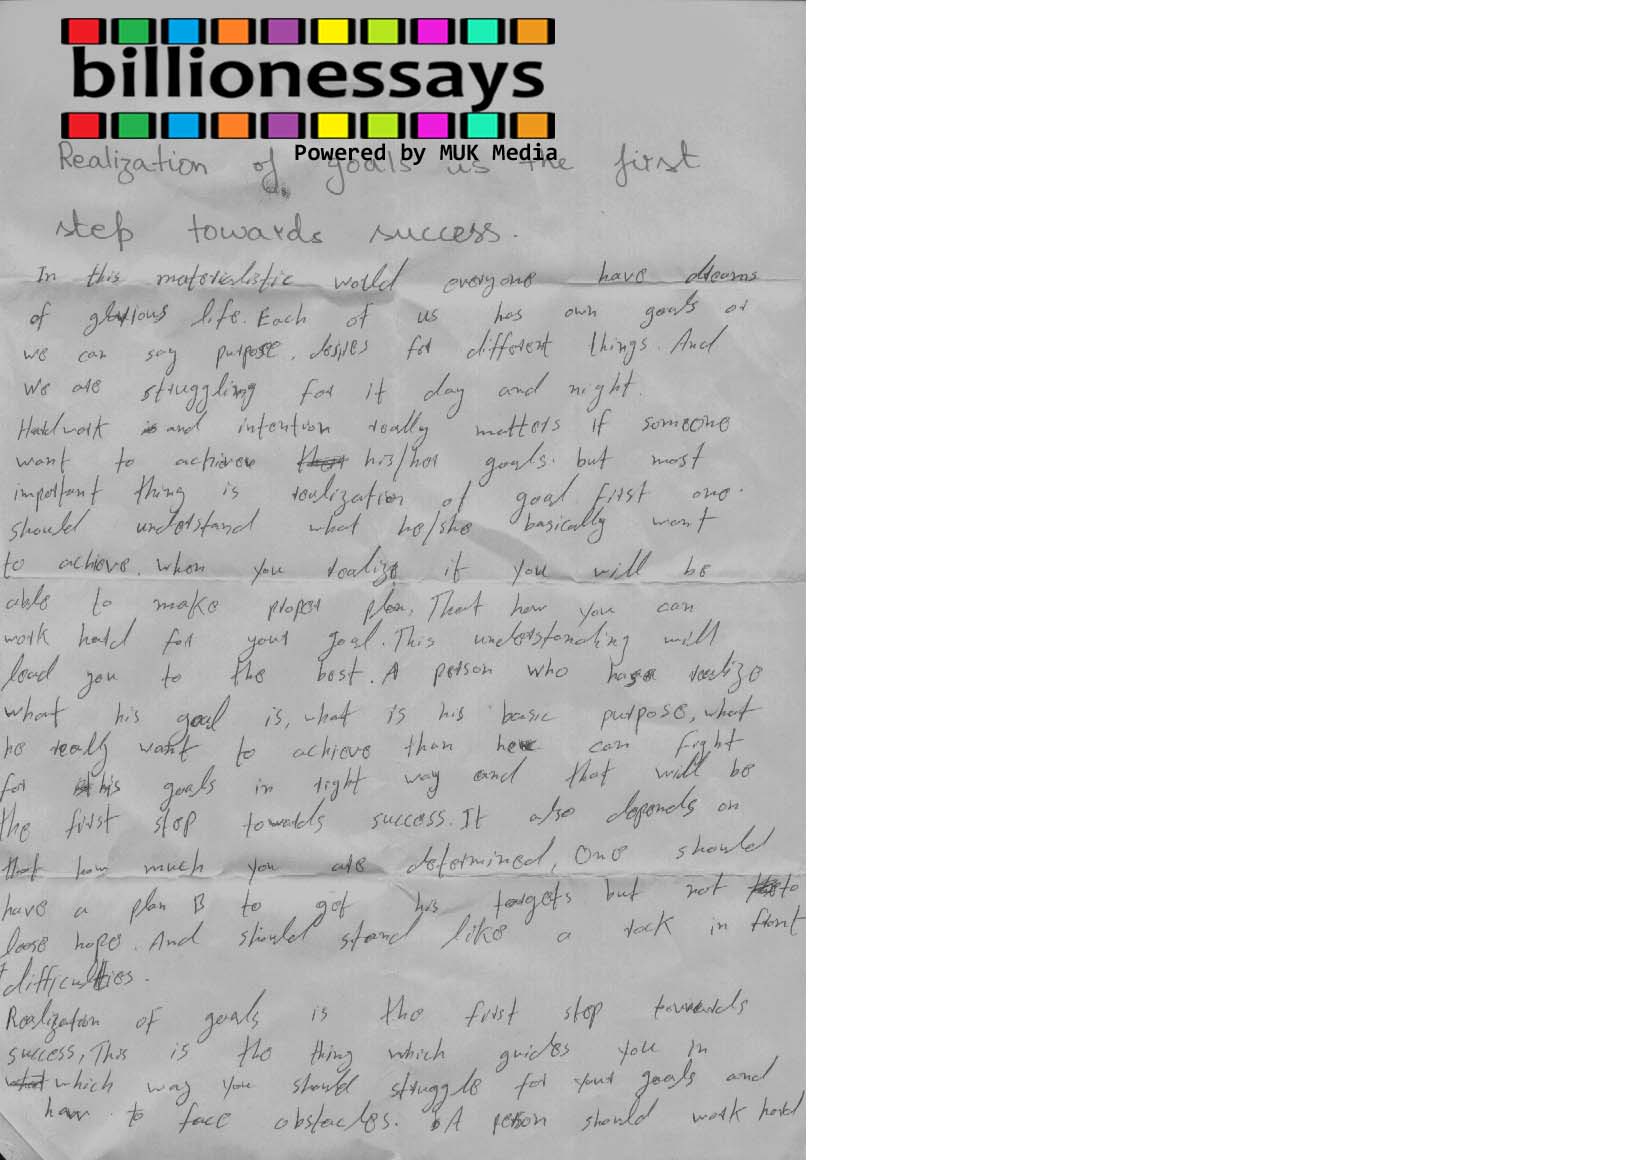 billionessays
Powered by MUK Media
Realization of goals is the first
step towards success.
In this materialistic world everyone have dreams
of glorious life. Each of us has own goals or
we can say purpose, desires for different things. And
we are struggling for it day and night.
Hardwork and intention really matters if someone
want to achieve his/her goals. but most
important thing is realization of goal first one.
should understand what he/she basically want
to achieve. when you realize it you will be
able to make proper plan, That how you can
work hard for your goal. This understanding will
lead you to the best. A person who has realize
what his goal is, what is his basic purpose, what
he really want to achieve than he can fight
for his goals in right way and that will be
the first step towards success. It also depends on
that how much you are determined, One should
have a plan B to get his targets but not to
loose hope. And should stand like a rock in front
difficulties.
Realization of goals is the first step towards
success, This is the thing which guides you in
which way you should struggle for your goals and
how to face obstacles. A person should work hard